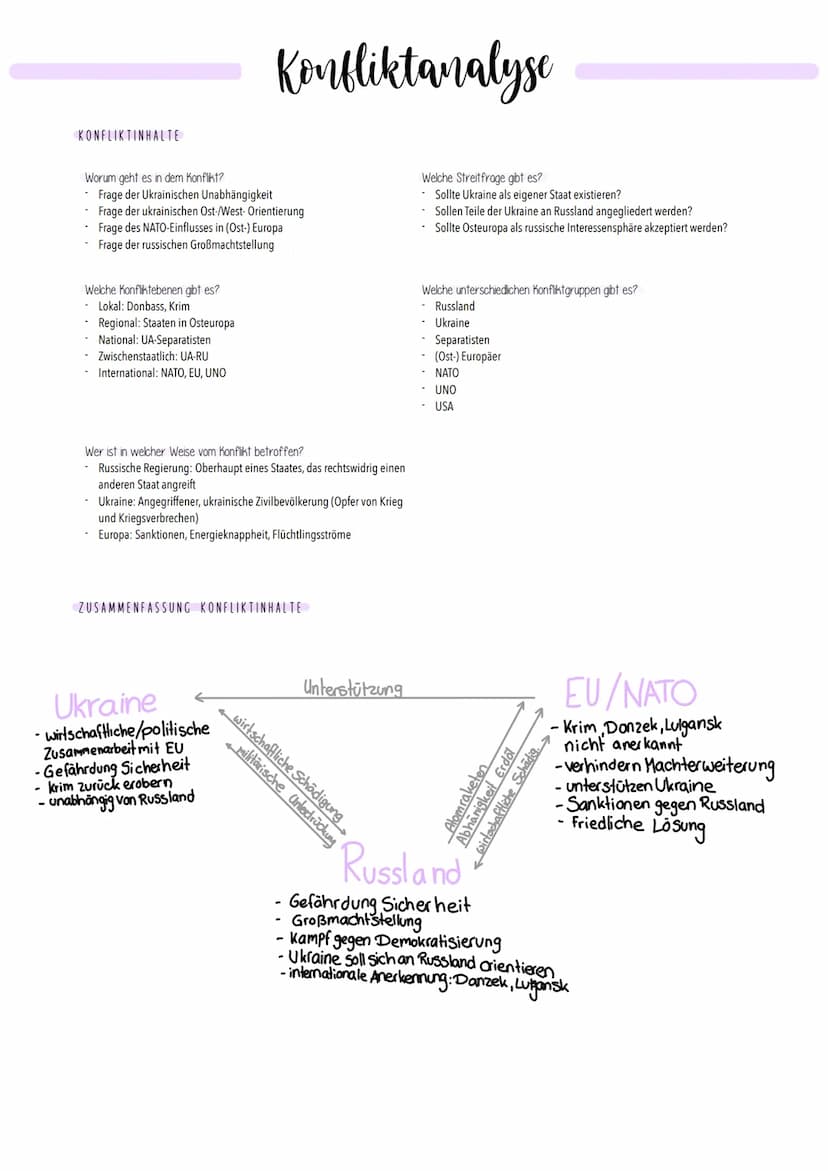 Konfliktanalyse
KONFLIKTINHALTE
Worum geht es in dem Konflikt?
- Frage der Ukrainischen Unabhängigkeit
- Frage der ukrainischen Ost-/West- Orientierung
- Frage des NATO-Einflusses in (Ost-) Europa
- Frage der russischen Großmachtstellung
Welche Streitfrage gibt es?
- Sollte Ukraine als eigener Staat existieren?
- Sollen Teile der Ukraine an Russland angegliedert werden?
- Sollte Osteuropa als russische Interessensphäre akzeptiert werden?
Welche Konfliktebenen gibt es?
- Lokal: Donbass, Krim
- Regional: Staaten in Osteuropa
- National: UA-Separatisten
- Zwischenstaatlich: UA-RU
- International: NATO, EU, UNO
Welche unterschiedlichen Konfliktgruppen gibt es?
- Russland
- Ukraine
- Separatisten
- (Ost-) Europäer
- NATO
- UNO
- USA
Wer ist in welcher Weise vom Konflikt betroffen?
- Russische Regierung: Oberhaupt eines Staates, das rechtswidrig einen
anderen Staat angreift
- Ukraine: Angegriffener, ukrainische Zivilbevölkerung (Opfer von Krieg
und Kriegsverbrechen)
- Europa: Sanktionen, Energieknappheit, Flüchtlingsströme
ZUSAMMENFASSUNG KONFLIKTINHALTE
Ukraine
- wirtschaftliche/politische
Zusammenarbeit mit EU
- Gefährdung Sicherheit
- Krim zurück erobern
- unabhängig von Russland
Unterstützung
EU/NATO
- Krim, Donzek, Lulgansk
nicht anerkannt
- verhindern Machterweiterung
- unterstützen Ukraine
- Sanktionen gegen Russland
- Friedliche Lösung
wirtschaftliche Schädigung
militärische
Atomraketen
Abhänigkeit Erdöl
wirtschaftliche Schädig.
Russland
- Gefährdung Sicherheit
- Großmachtstellung
- Kampf gegen Demokratisierung
- Ukraine soll sich an Russland orientieren
- internationale Anerkennung: Danzek,